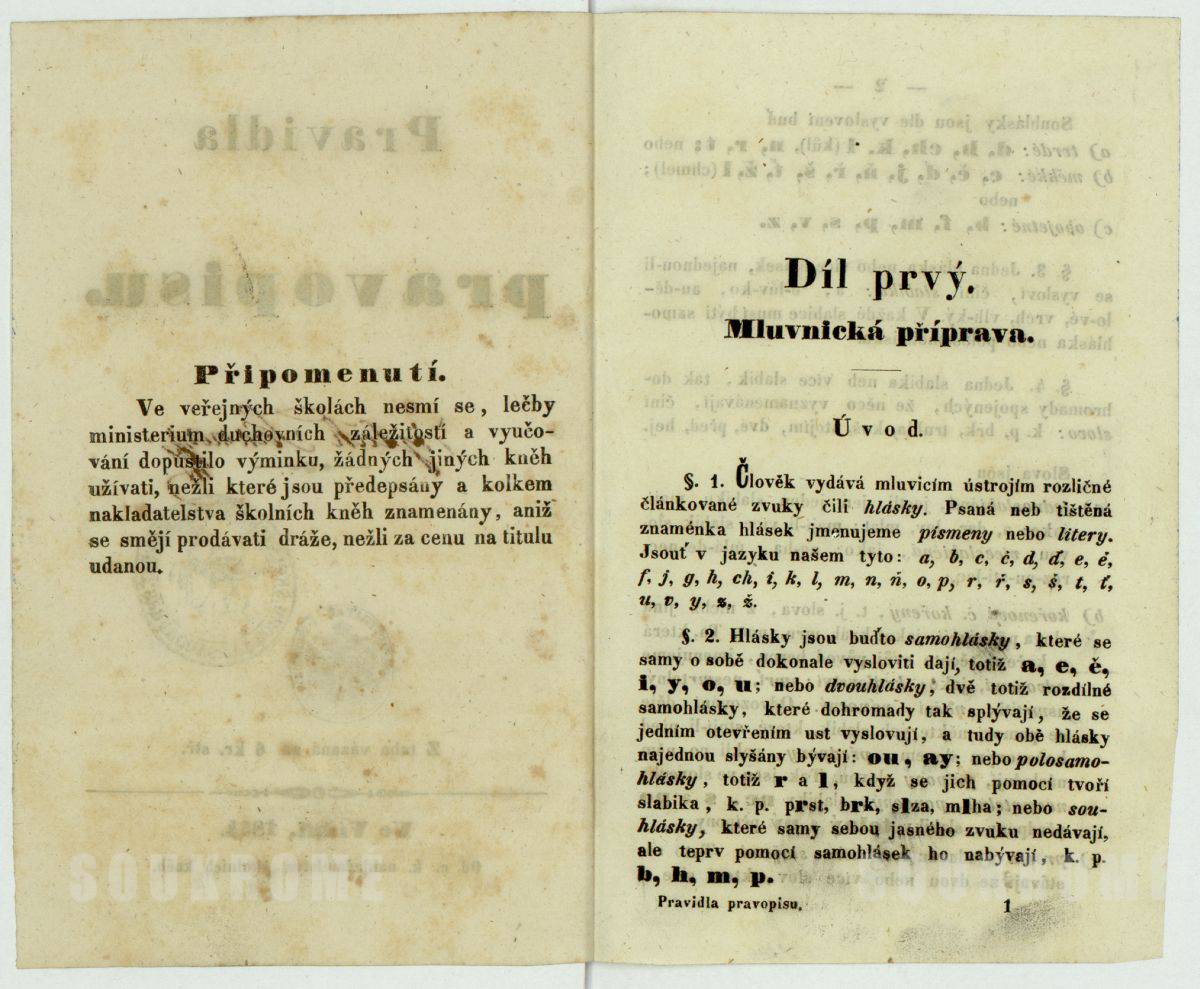 Připomenutí.
Ve veřejných školách nesmí se, lečby
ministerium duchovních záležitostí a vyučo-
vání dopustilo výminku, žádných jiných kněh
užívati, nežli které jsou předepsány a kolkem
nakladatelstva školních kněh znamenány, aniž
se smějí prodávati dráže, nežli za cenu na titulu
udanou.
Díl prvý.
Mluvnická příprava.
Úvod.
§. 1. Člověk vydává mluvicím ústrojím rozličné
článkované zvuky čili hlásky. Psaná neb tištěná
znaménka hlásek jmenujeme písmeny nebo litery.
Jsouť v jazyku našem tyto: a, b, c, č, d, ď, e, ě,
f, j, g, h, ch, i, k, l, m, n, ň, o, p, r, ř, s, š, t, ť,
u, v, y, z, ž.
§. 2. Hlásky jsou buďto samohlásky, které se
samy o sobě dokonale vysloviti dají, totiž a, e, ě,
i, y, o, u; nebo dvouhlásky, dvě totiž rozdílné
samohlásky, které dohromady tak splývají, že se
jedním otevřením ust vyslovují, a tudy obě hlásky
najednou slyšány bývají: ou, ay; nebo polosamo-
hlásky, totiž r a l, když se jich pomocí tvoří
slabika, k. p. prst, brk, slza, mlha; nebo sou-
hlásky, které samy sebou jasného zvuku nedávají,
ale teprv pomocí samohlásek ho nabývají, k. p.
b, h, m, p.
Pravidla pravopisu. 1